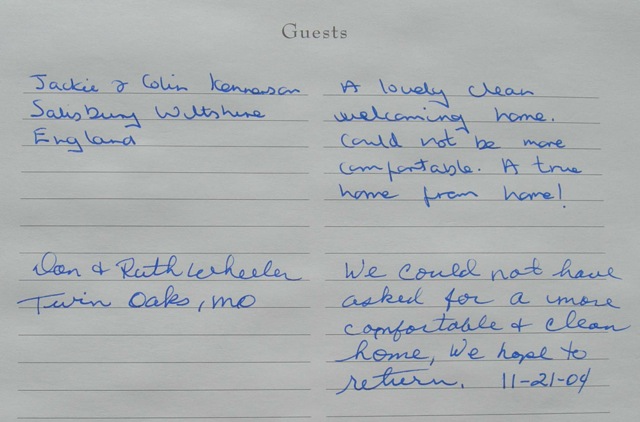 Guests
Jackie & Colin
Salisbury Wiltshire
England
A lovely clean
welcoming home.
Could not be more
comfortable. A true
home from home!
Don & Ruth Wheeler
Twin Oaks, MO
We could not have
asked for a more
comfortable & clean
home, We hope to
return. 11-21-04